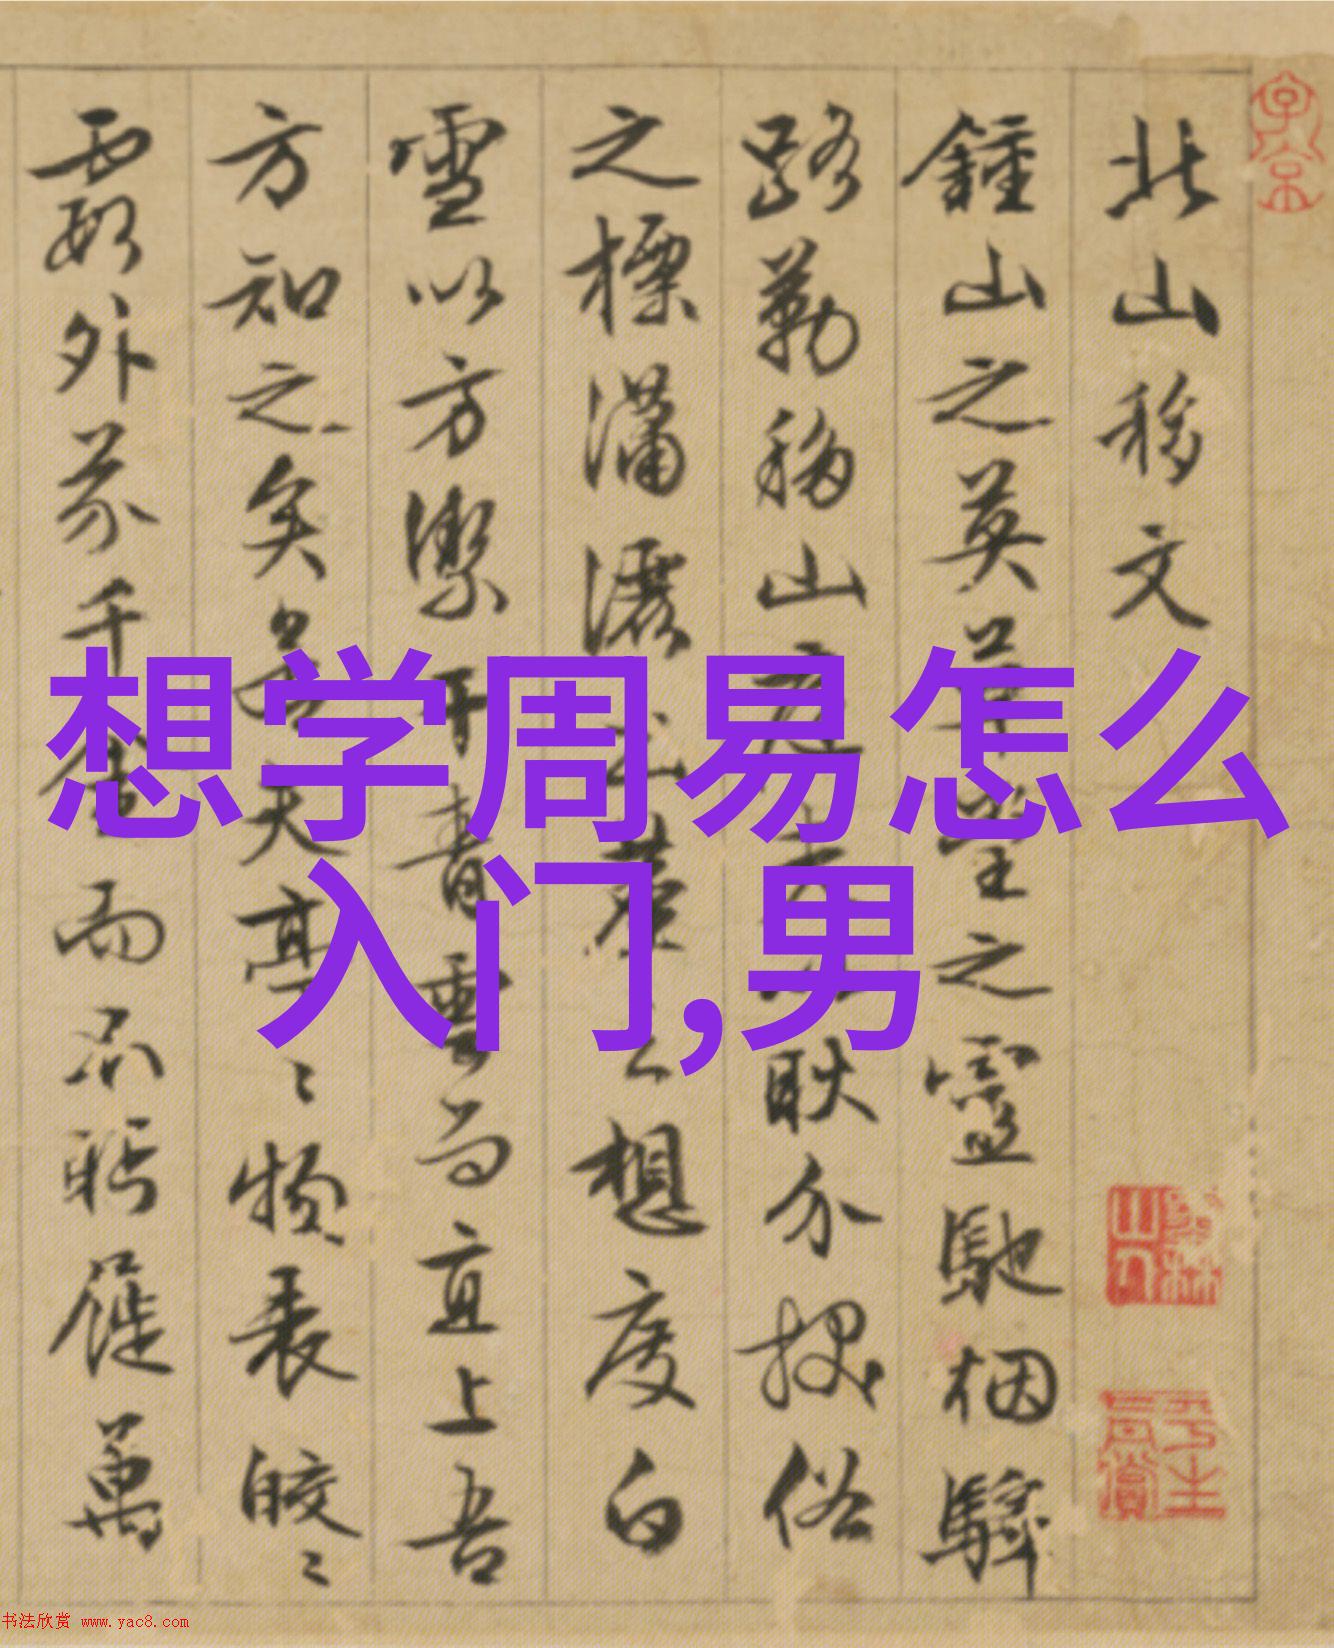 北山移文
鍾山之英草堂之靈馳烟驛
路勒移山庭夫以耿介拔俗
之標瀟灑出塵之想度白
雪以方潔干青雲而直上吾
方知之矣若其亭亭物表皎皎
霞外芥千金而不眄屣萬
想学周易怎么
入门,男
书法欣赏 www.yac8.com